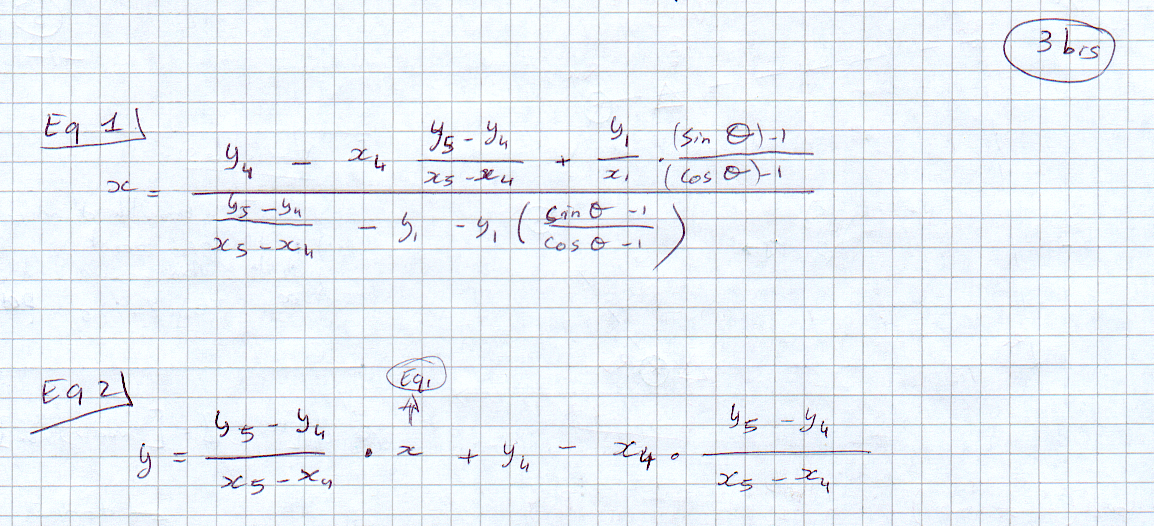 3 bis
Eq 1)
x = \frac{y_4 - x_4 \frac{y_5 - y_4}{x_5 - x_4} + \frac{y_1}{x_1} \cdot \frac{(\sin \theta) - 1}{(\cos \theta) - 1}}{\frac{y_5 - y_4}{x_5 - x_4} - y_1 - y_1 \left( \frac{\sin \theta - 1}{\cos \theta - 1} \right)}
Eq 2)
Eq1
y = \frac{y_5 - y_4}{x_5 - x_4} \cdot x + y_4 - x_4 \cdot \frac{y_5 - y_4}{x_5 - x_4}